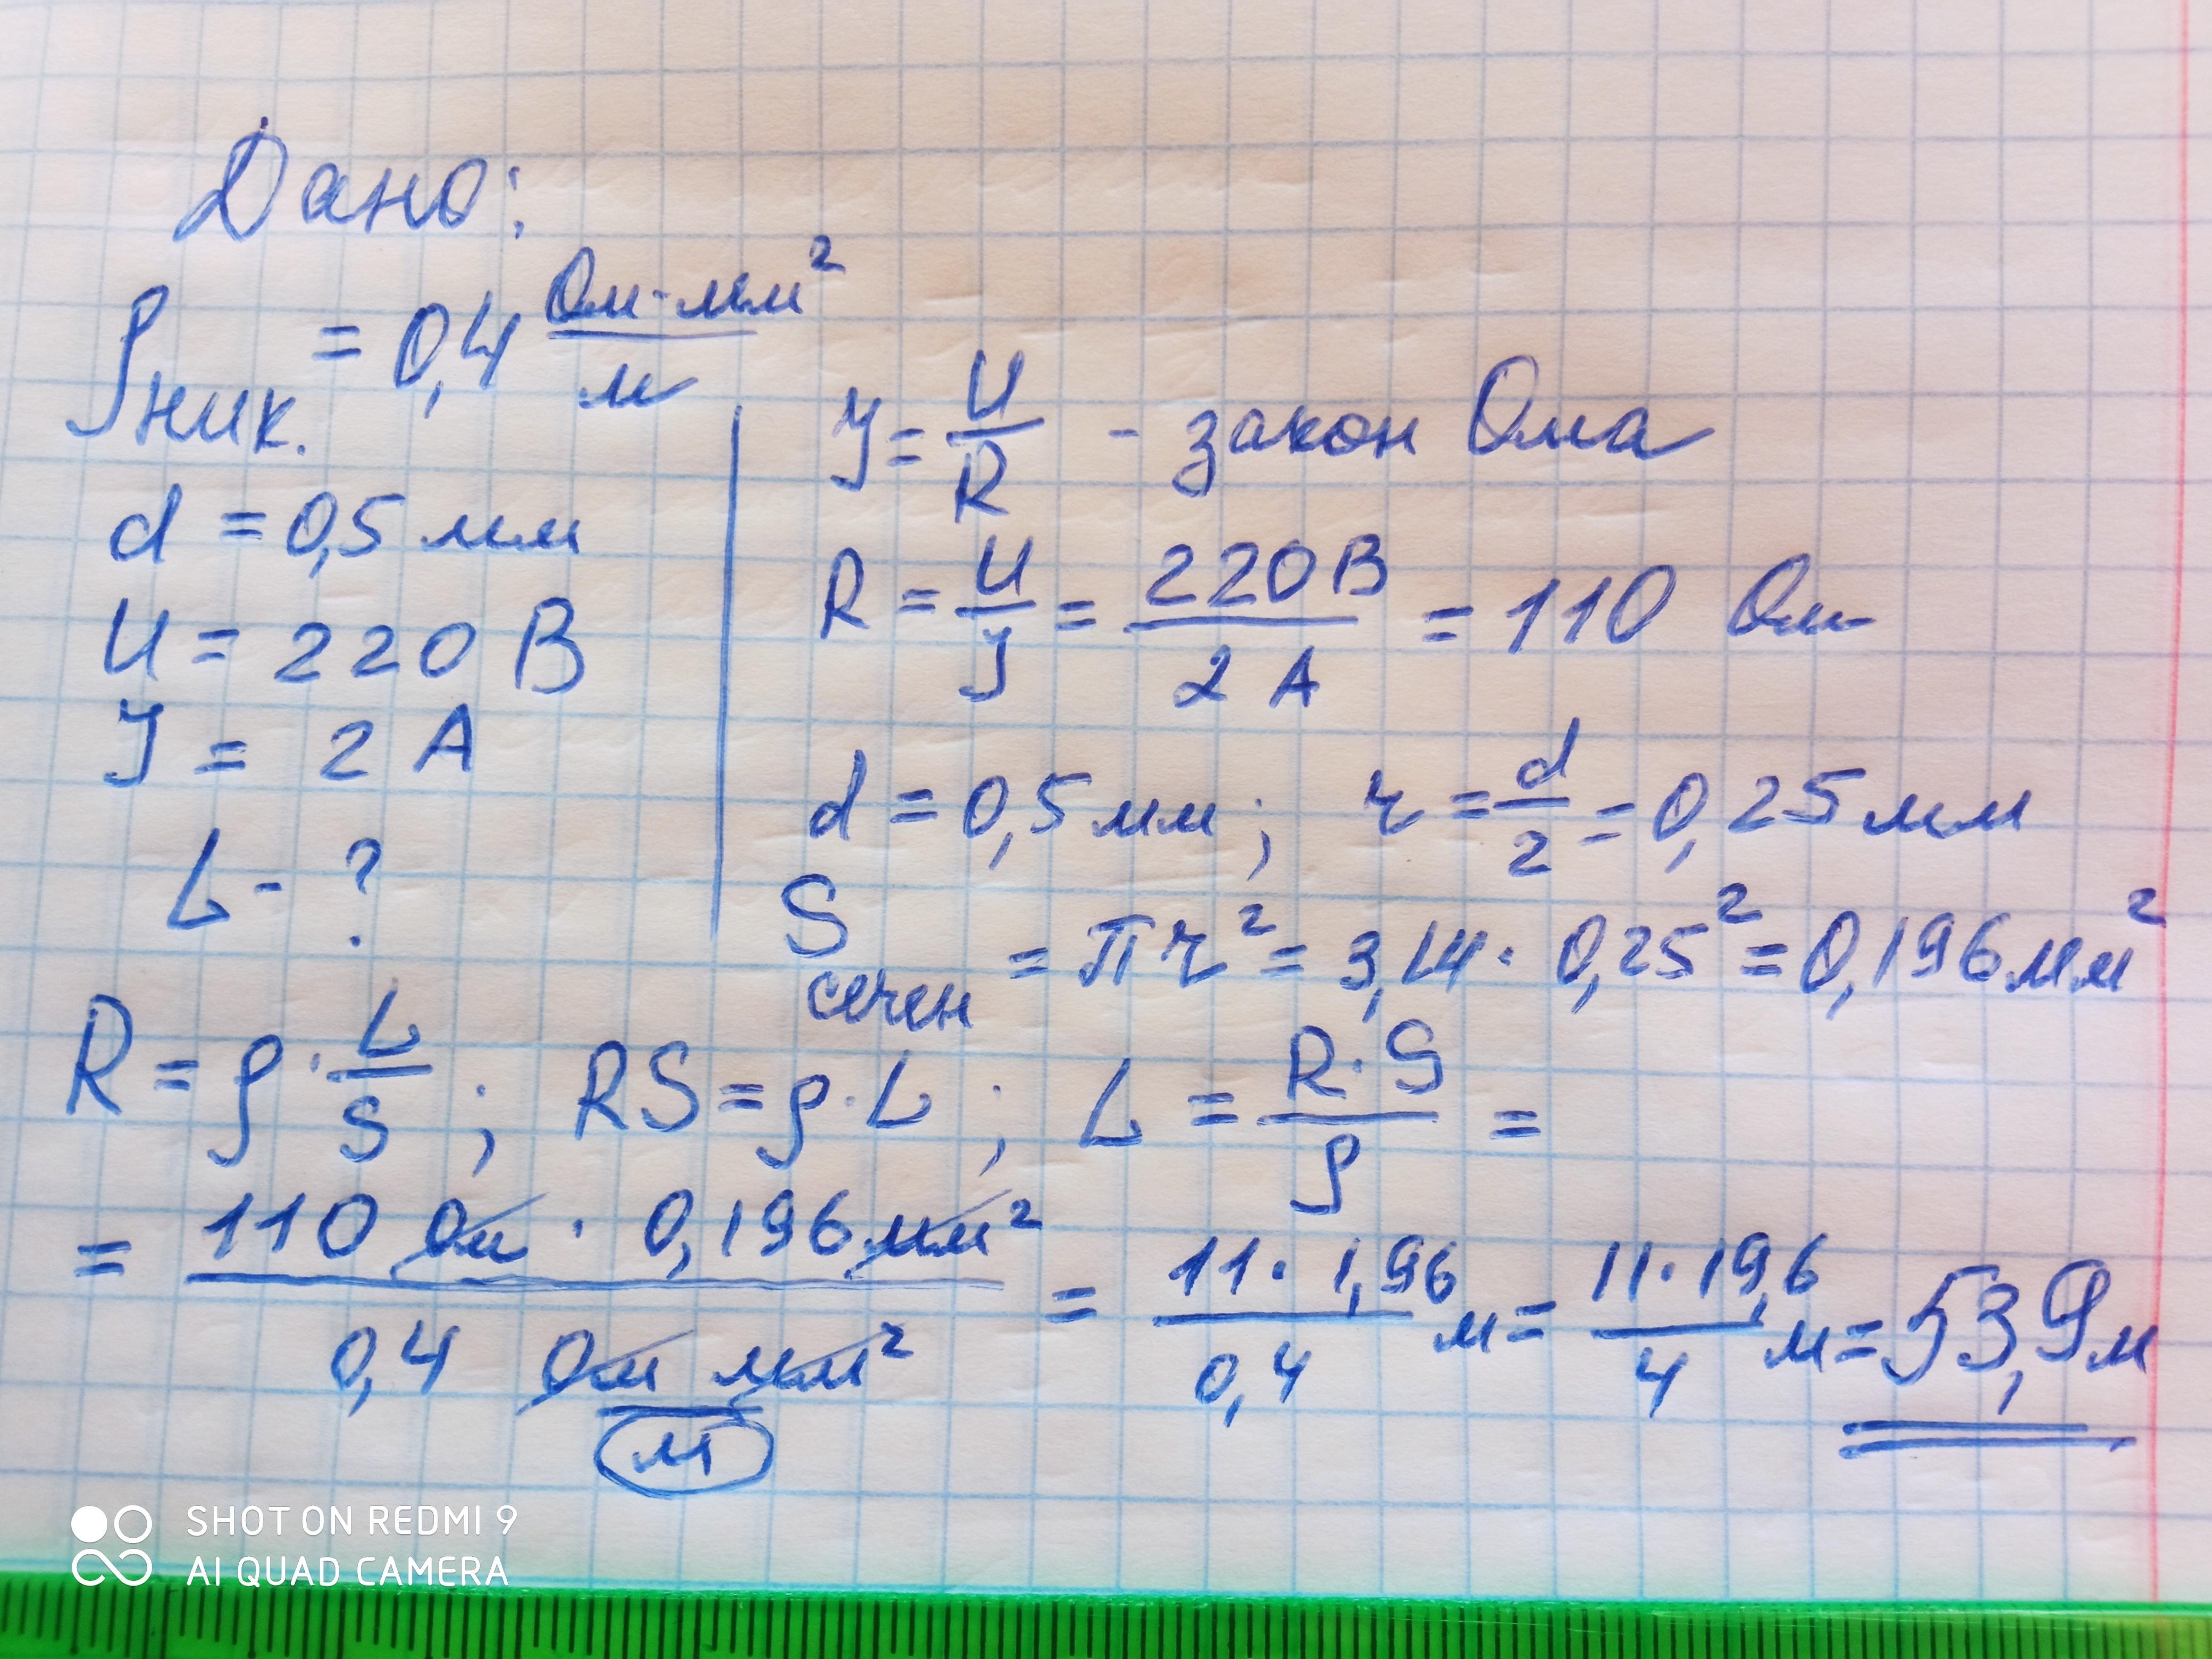 Дано:
ρник. = 0,4 Ом·мм²/м
d = 0,5 мм
U = 220 В
J = 2 А
L - ?
J = U/R - закон Ома
R = U/J = 220В/2 А = 110 Ом
d = 0,5 мм; r = d/2 = 0,25 мм
Sсечен = πr² = 3,14 · 0,25² = 0,196 мм²
R = ρ · L/S ; RS = ρ · L ; L = R·S/ρ =
= 110 Ом · 0,196 мм² / 0,4 Ом мм²/м = 11 · 1,96/0,4 м = 11 · 19,6/4 м = 53,9 м
SHOT ON REDMI 9
AI QUAD CAMERA